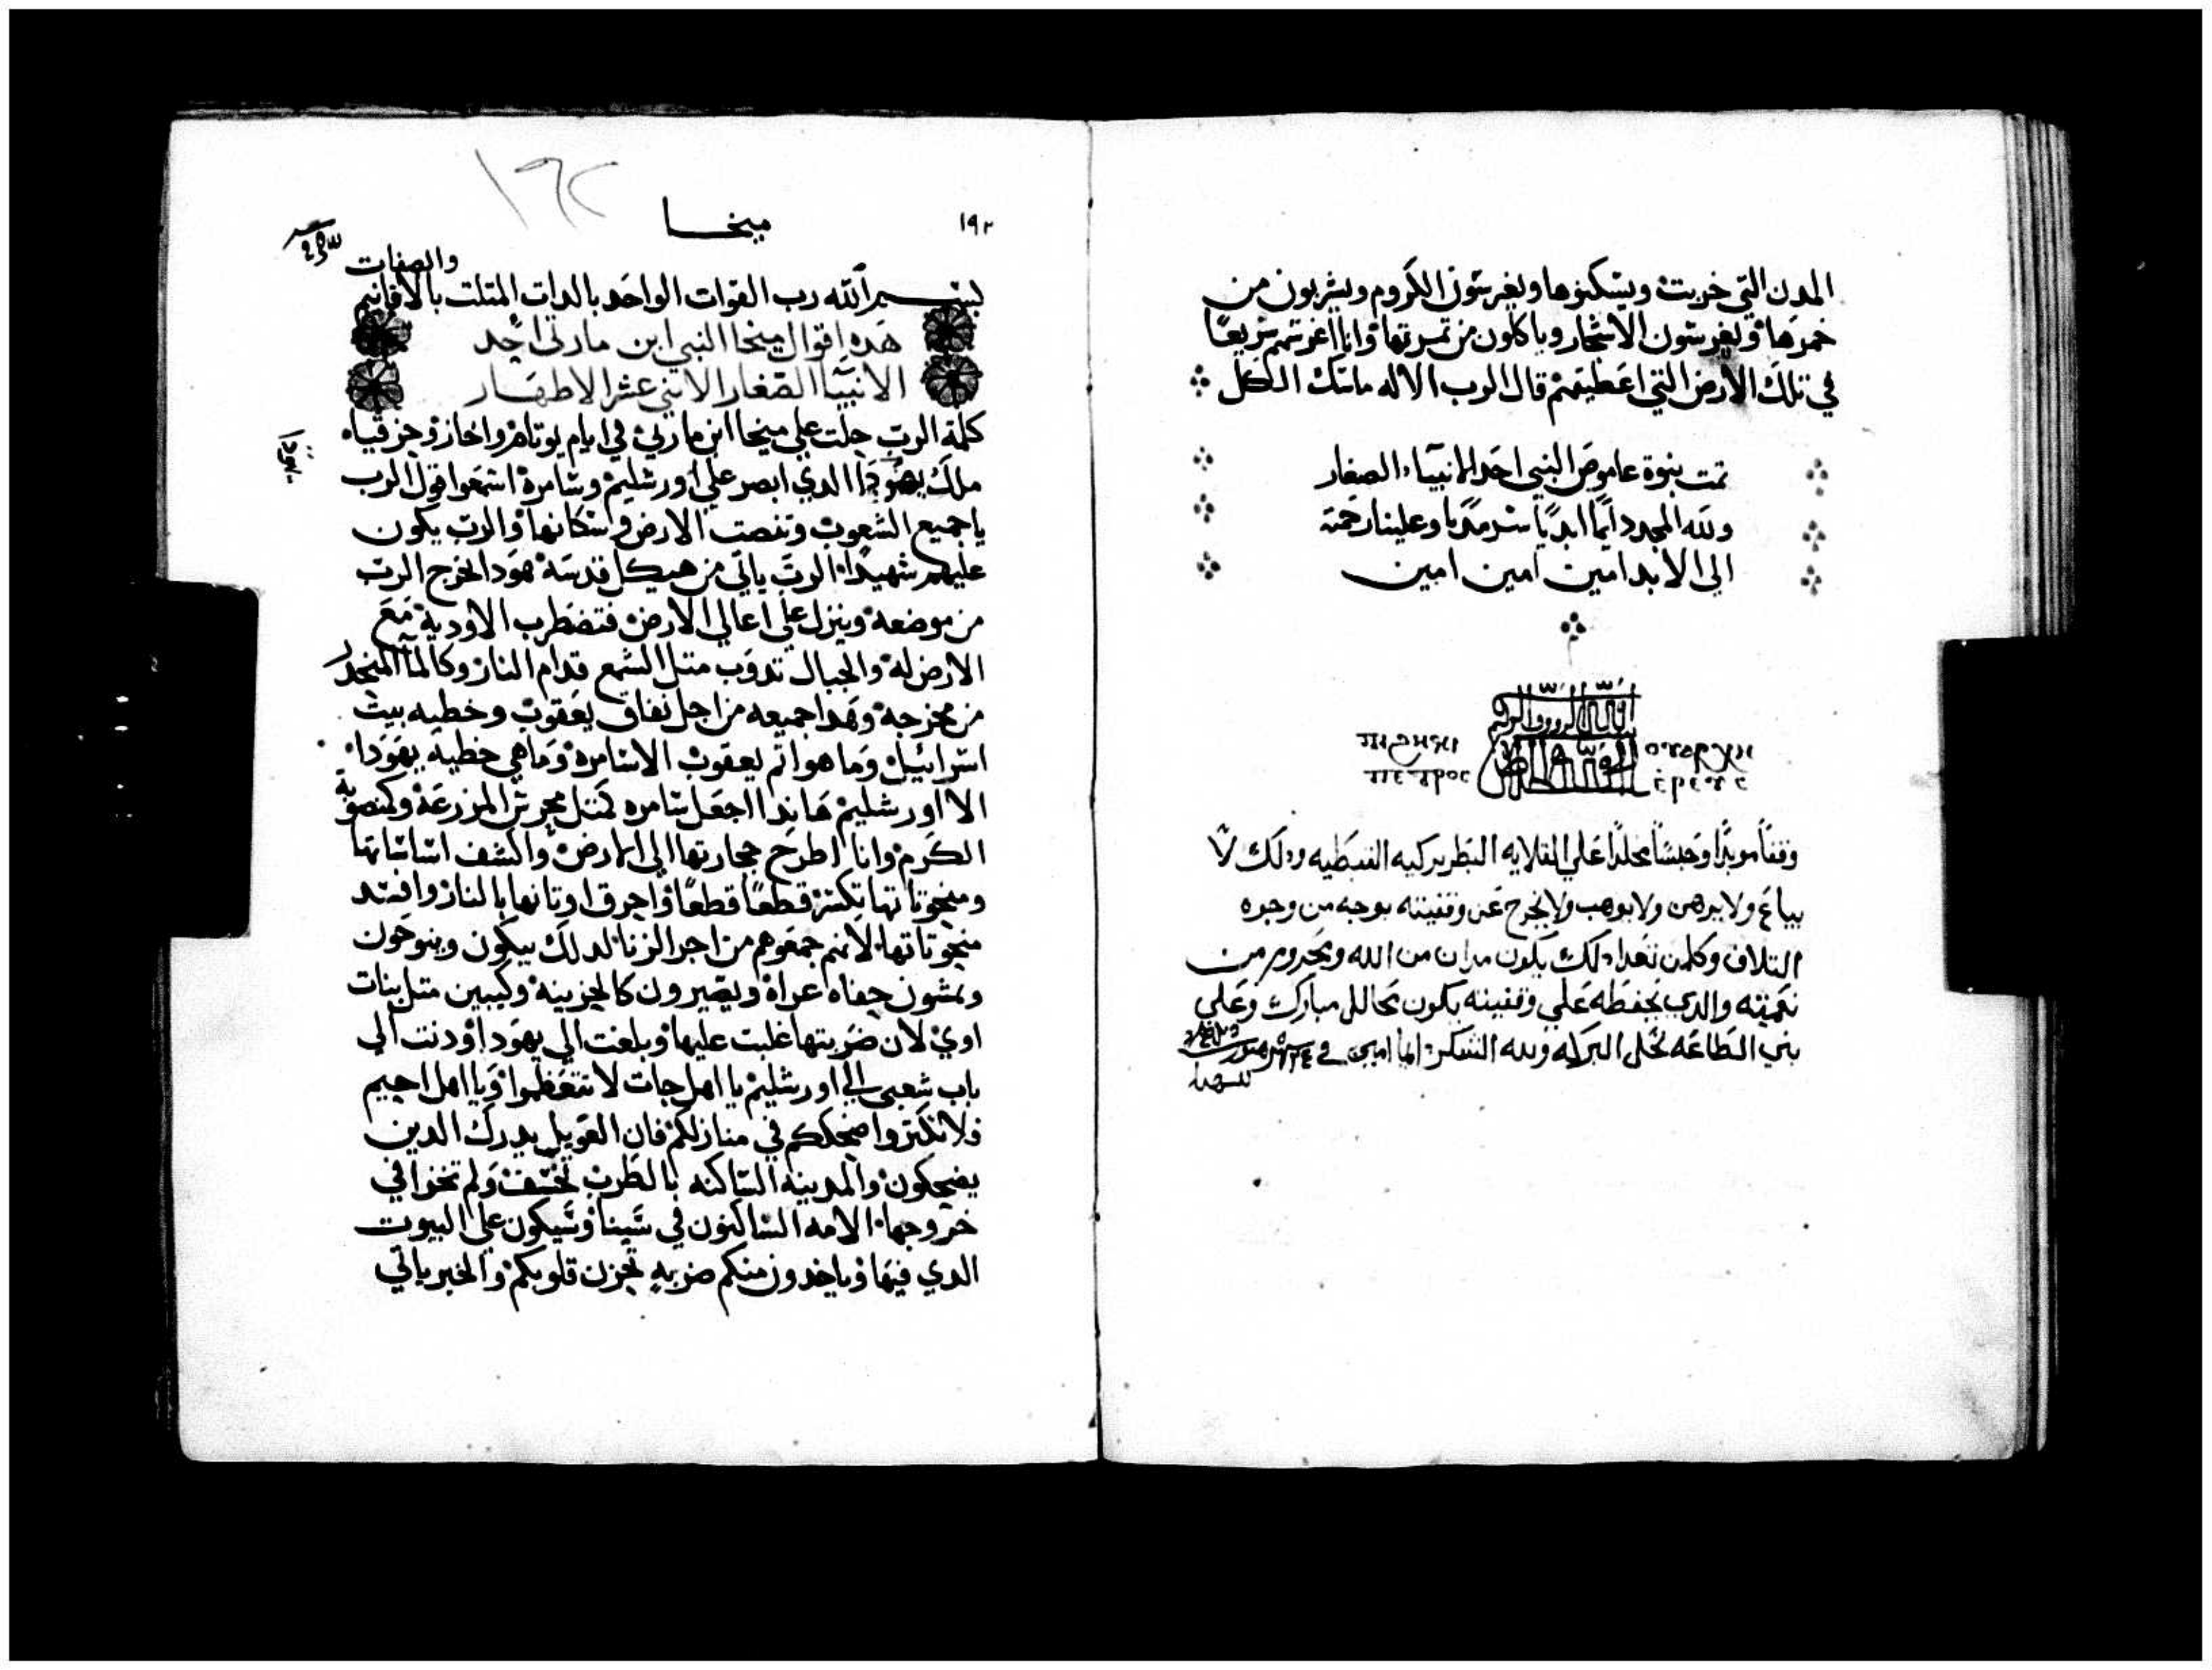 المدن التي خربت ويسكنوها ويغرسون الكروم ويشربون من
خمرها ويغرسون الاشجار وياكلون من تمرتها وانا اغرستهم سريعًا
في تلك الارض التي اعطيتهم قال الرب الاله ماسك الكل
تمت بنوة عاموص النبي احد الانبياء الصغار
ولله المجد دايمًا ابديًا سرمديًا وعلينا رحمته
الي الابد امين امين امين
وقفًا موبدًا وحبسًا مخلدًا علي القلايه البطريركيه القبطيه ودلك لا
يباع ولا يرهن ولا يوهب ولا يخرج عن وقفيته بوجه من وجوه
التلاف وكلمن تعدا دلك يكون مدان من الله ومحروم من
نعمته والدي يحفظه علي وقفيته يكون محالل مبارك وعلي
بني الطاعه تحل البركه ولله الشكر دايما امين في
للشهدا
١٩٢
١٩٢
ميخا
والصفات
بسم الله رب القوات الواحد بالدات المتلت بالاقانيم
هده اقوال ميخا النبي ابن مارتي احد
الانبيا الصغار الاتني عشر الاطهار
كلمة الرب حلت علي ميخا ابن مارتي في ايام يوتام واحاز وحزقياه
ملك يهودا الدي ابصر علي اورشليم وسامرة اسمعوا قول الرب
يا جميع الشعوب وتنصت الارض وسكانها والرب يكون
عليهم شهيدًا الرب ياتي من هيكل قدسه هودا الخرج الرب
من موضعه وينزل علي اعالي الارض فتضطرب الاودية مع
الارض له والجبال تدوب متل الشمع قدام النار وكالما المنحدر
من مخرجه وهدا جميعه من اجل نفاق يعقوب وخطيه بيت
اسرائيل وما هو اتم يعقوب الا سامره وما هي خطيه يهودا
الا اورشليم هاندا اجعل سامره كمتل محرس المزرعة وكنصوبة
الكرم وانا اطرح حجارتها الي الارض واكشف اساساتها
ومنحوتاتها تكسر قطعًا قطعًا واحرق اوتانها بالنار وافسد
منحوتاتها لانهم جمعوهم من اجر الزنا لدلك يبكون وينوحون
ويمشون حفاه عراة ويصيرون كالحزينة وكيبين متل بنات
اوي لان ضربتها غلبت عليها وبلغت الي يهودا ودنت الي
باب شعبي الي اورشليم يا اهل جات لا تتعظموا ويا اهل احيم
فلا تكتروا ضحككم في منازلكم فان العويل يدرك الدين
يضحكون والمدينه الساكنه بالطرب تخسف ولم تخزا في
خروجها الامه الساكنون في سينا وسيكون علي البيوت
الدي فيها وياخدون منكم ضربه تحزن قلوبكم والخبر ياتي